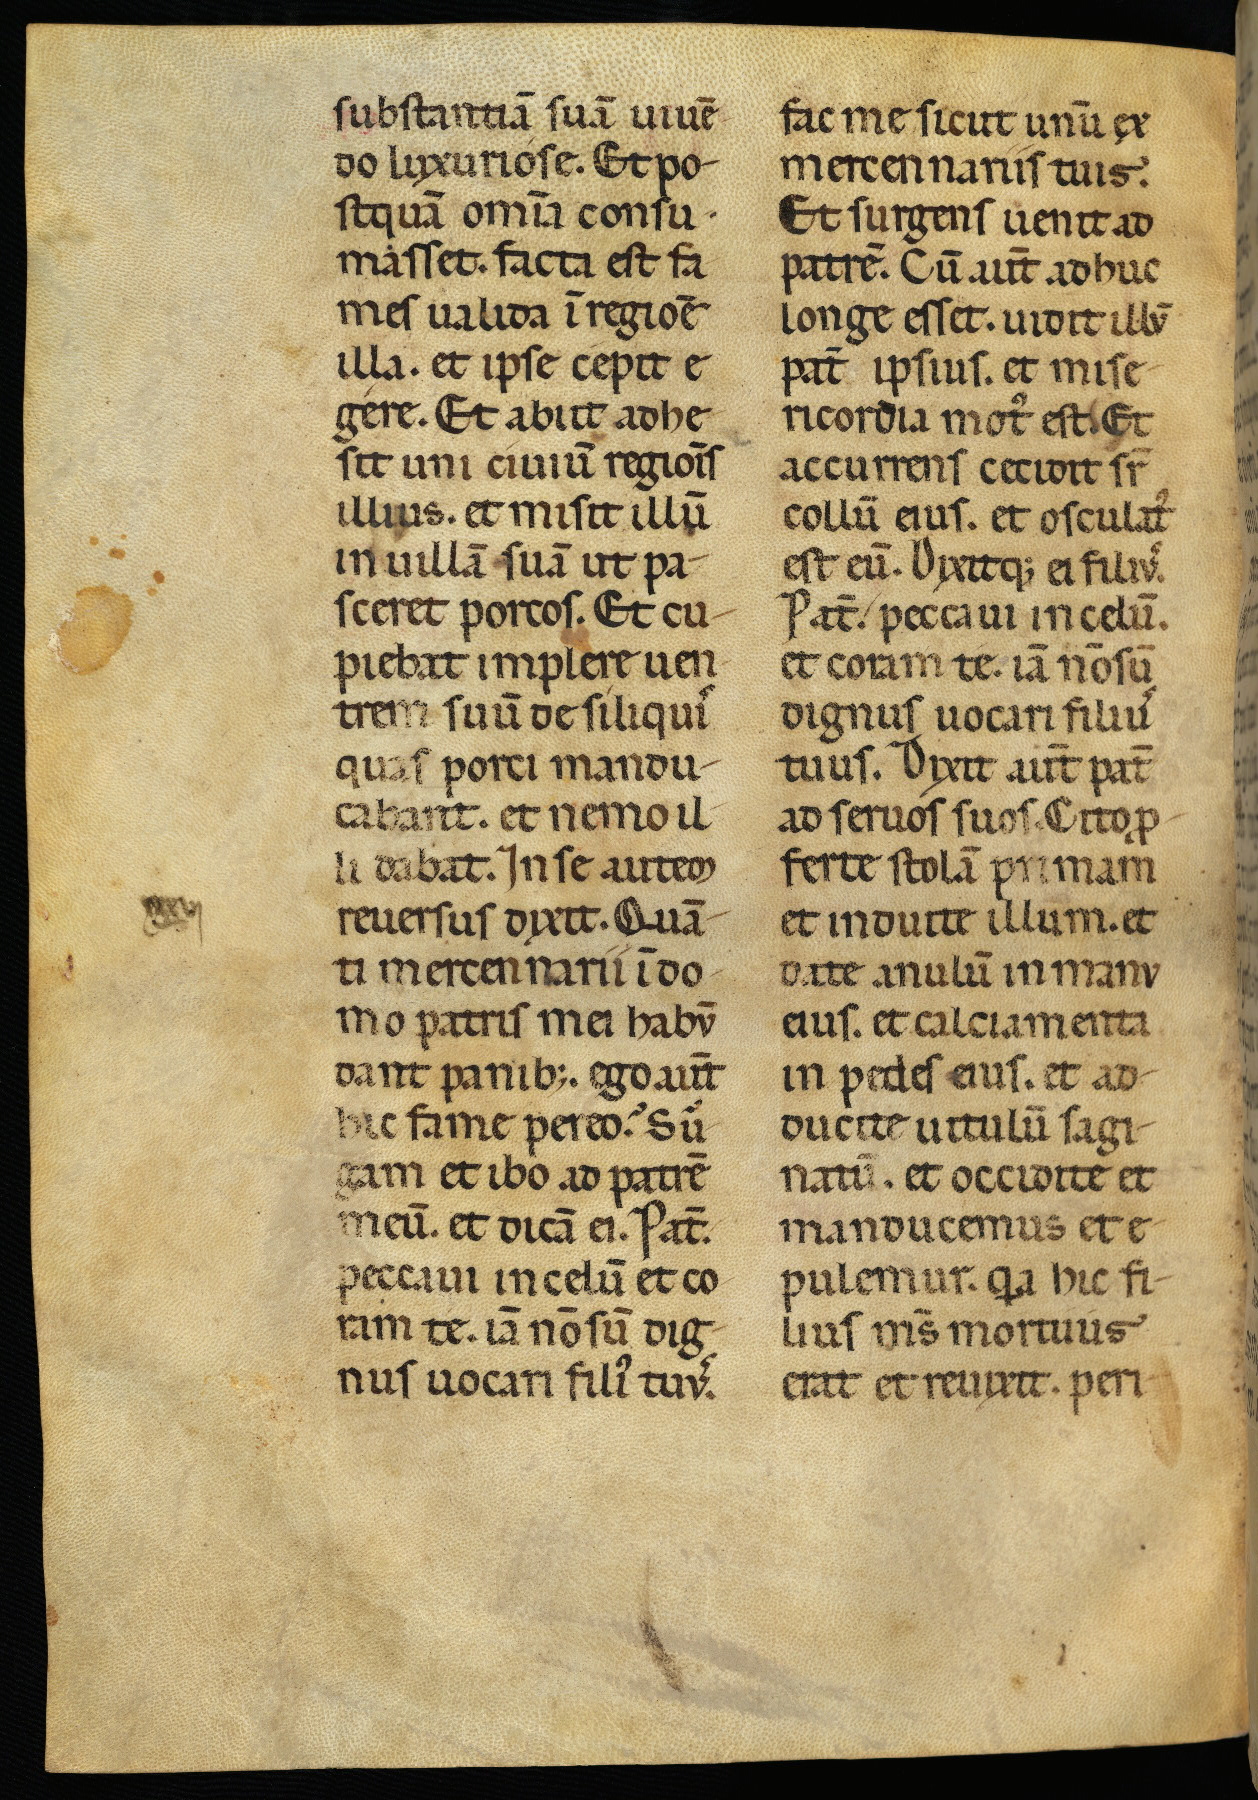 substantiā suā uiuē
do luxuriose. Et po-
stquā om̄ia consu-
masset. facta est fa
mes ualida ī regioē
illa. et ipse cepit e
gere. Et abiit adhe
sit uni ciuiū regiōis
illius. et misit illū
in uillā suā ut pa-
sceret porcos. Et cu-
piebat implere uen-
trem suū de siliquiˢ
quas porci mandu-
cabant. et nemo il-
li dabat. In se autem
reuersus dixit. Quā-
ti mercennarii ī do-
mo patris mei habū
dant panib;. ego aut̄
hic fame pereo. Su᷒
gam et ibo ad patrē
meū. et dicā ei. Pat̄.
peccaui in celū et co
ram te. iā nō sū dig-
nus uocari filiꝰ tuvˢ.
fac me sicut unū ex
mercennariis tuis.
Et surgens uenit ad
patrē. Cū aut̄ adhuc
longe esset. uidit illv̄
pat̄ ipsius. et mise-
ricordia motꝰ est. Et
accurrens cecidit sr̄
collū eius. et osculatꝰ
est eū. Dixitq; ei filivˢ.
Pat̄. peccaui in celū.
et coram te. iā nō sū
dignus uocari filiuˢ
tuus. Dixit aut̄ pat̄
ad seruos suos. Cito ꝓ-
ferte stolā primam
et induite illum. et
date anulū in manv
eius. et calciamenta
in pedes eius. et ad-
ducite uitulū sagi-
natū. et occidite et
manducemus et e-
pulemur. qa hic fi-
lius ms̄ mortuus
erat et reuixit. peri